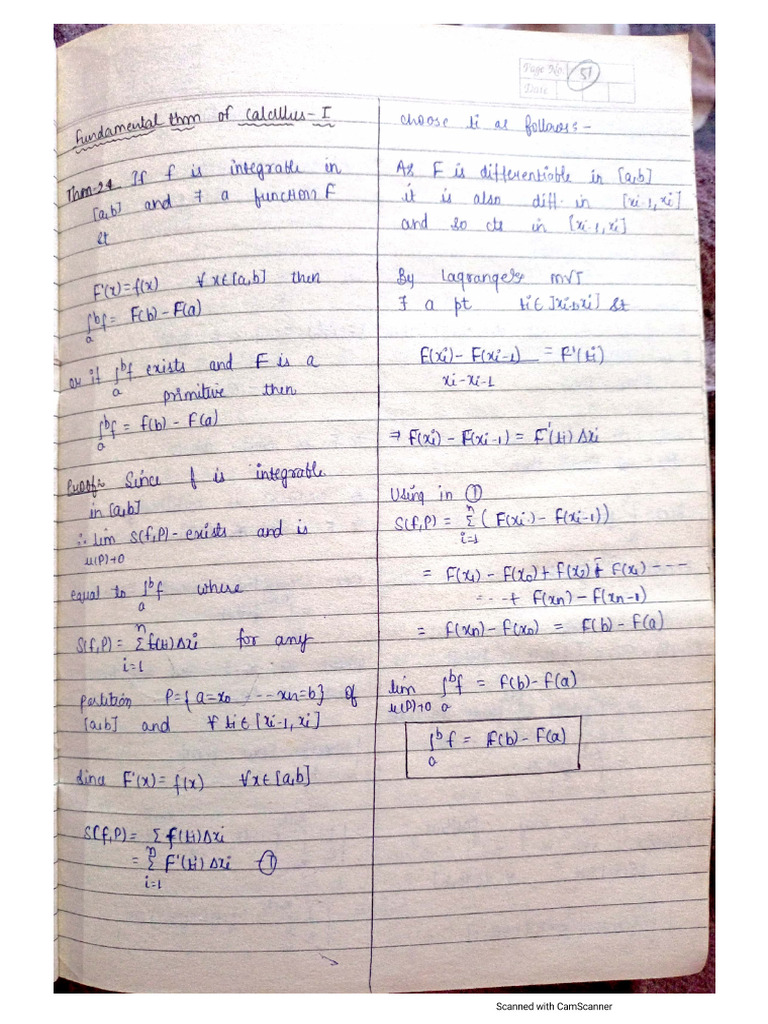 Page No. 51
Date
Fundamental thm of calculus-I
Thm-24 If f is integrable in
[a,b] and ∃ a function F
st
F'(x)=f(x) ∀ x∈[a,b] then
∫ₐᵇf = F(b)-F(a)
or if ∫ₐᵇf exists and F is a
primitive then
∫ₐᵇf = f(b) - F(a)
Proof:- Since f is integrable
in [a,b]
∴ lim S(f,P)-exists and is
μ(P)→0
equal to ∫ₐᵇf where
S(f,P) = Σ f(ti)Δxi for any
n
i=1
partition P={a=x0 ---xn=b} of
[a,b] and ∀ ti∈[xi-1,xi]
since F'(x)=f(x) ∀x∈[a,b]
S(f,P)= Σ f(ti)Δxi
= Σ F'(ti) Δxi ①
n
i=1
choose ti as follows:-
As F is differentiable in [a,b]
it is also diff. in [xi-1,xi]
and so cts in [xi-1,xi]
By Lagranges MVT
∃ a pt ti∈]xi-1,xi[ st
F(xi)-F(xi-1) = F'(ti)
xi-xi-1
⇒ F(xi)-F(xi-1) = F'(ti) Δxi
Using in ①
S(f,P) = Σ (F(xi)-F(xi-1))
n
i=1
= F(x1)-F(x0)+F(x2)-F(x1)---
=--+ F(xn)-F(xn-1)
= F(xn)-F(x0) = F(b)-F(a)
lim ∫ₐᵇf = F(b)-F(a)
μ(P)→0
∫ₐᵇf = F(b)-F(a)
Scanned with CamScanner